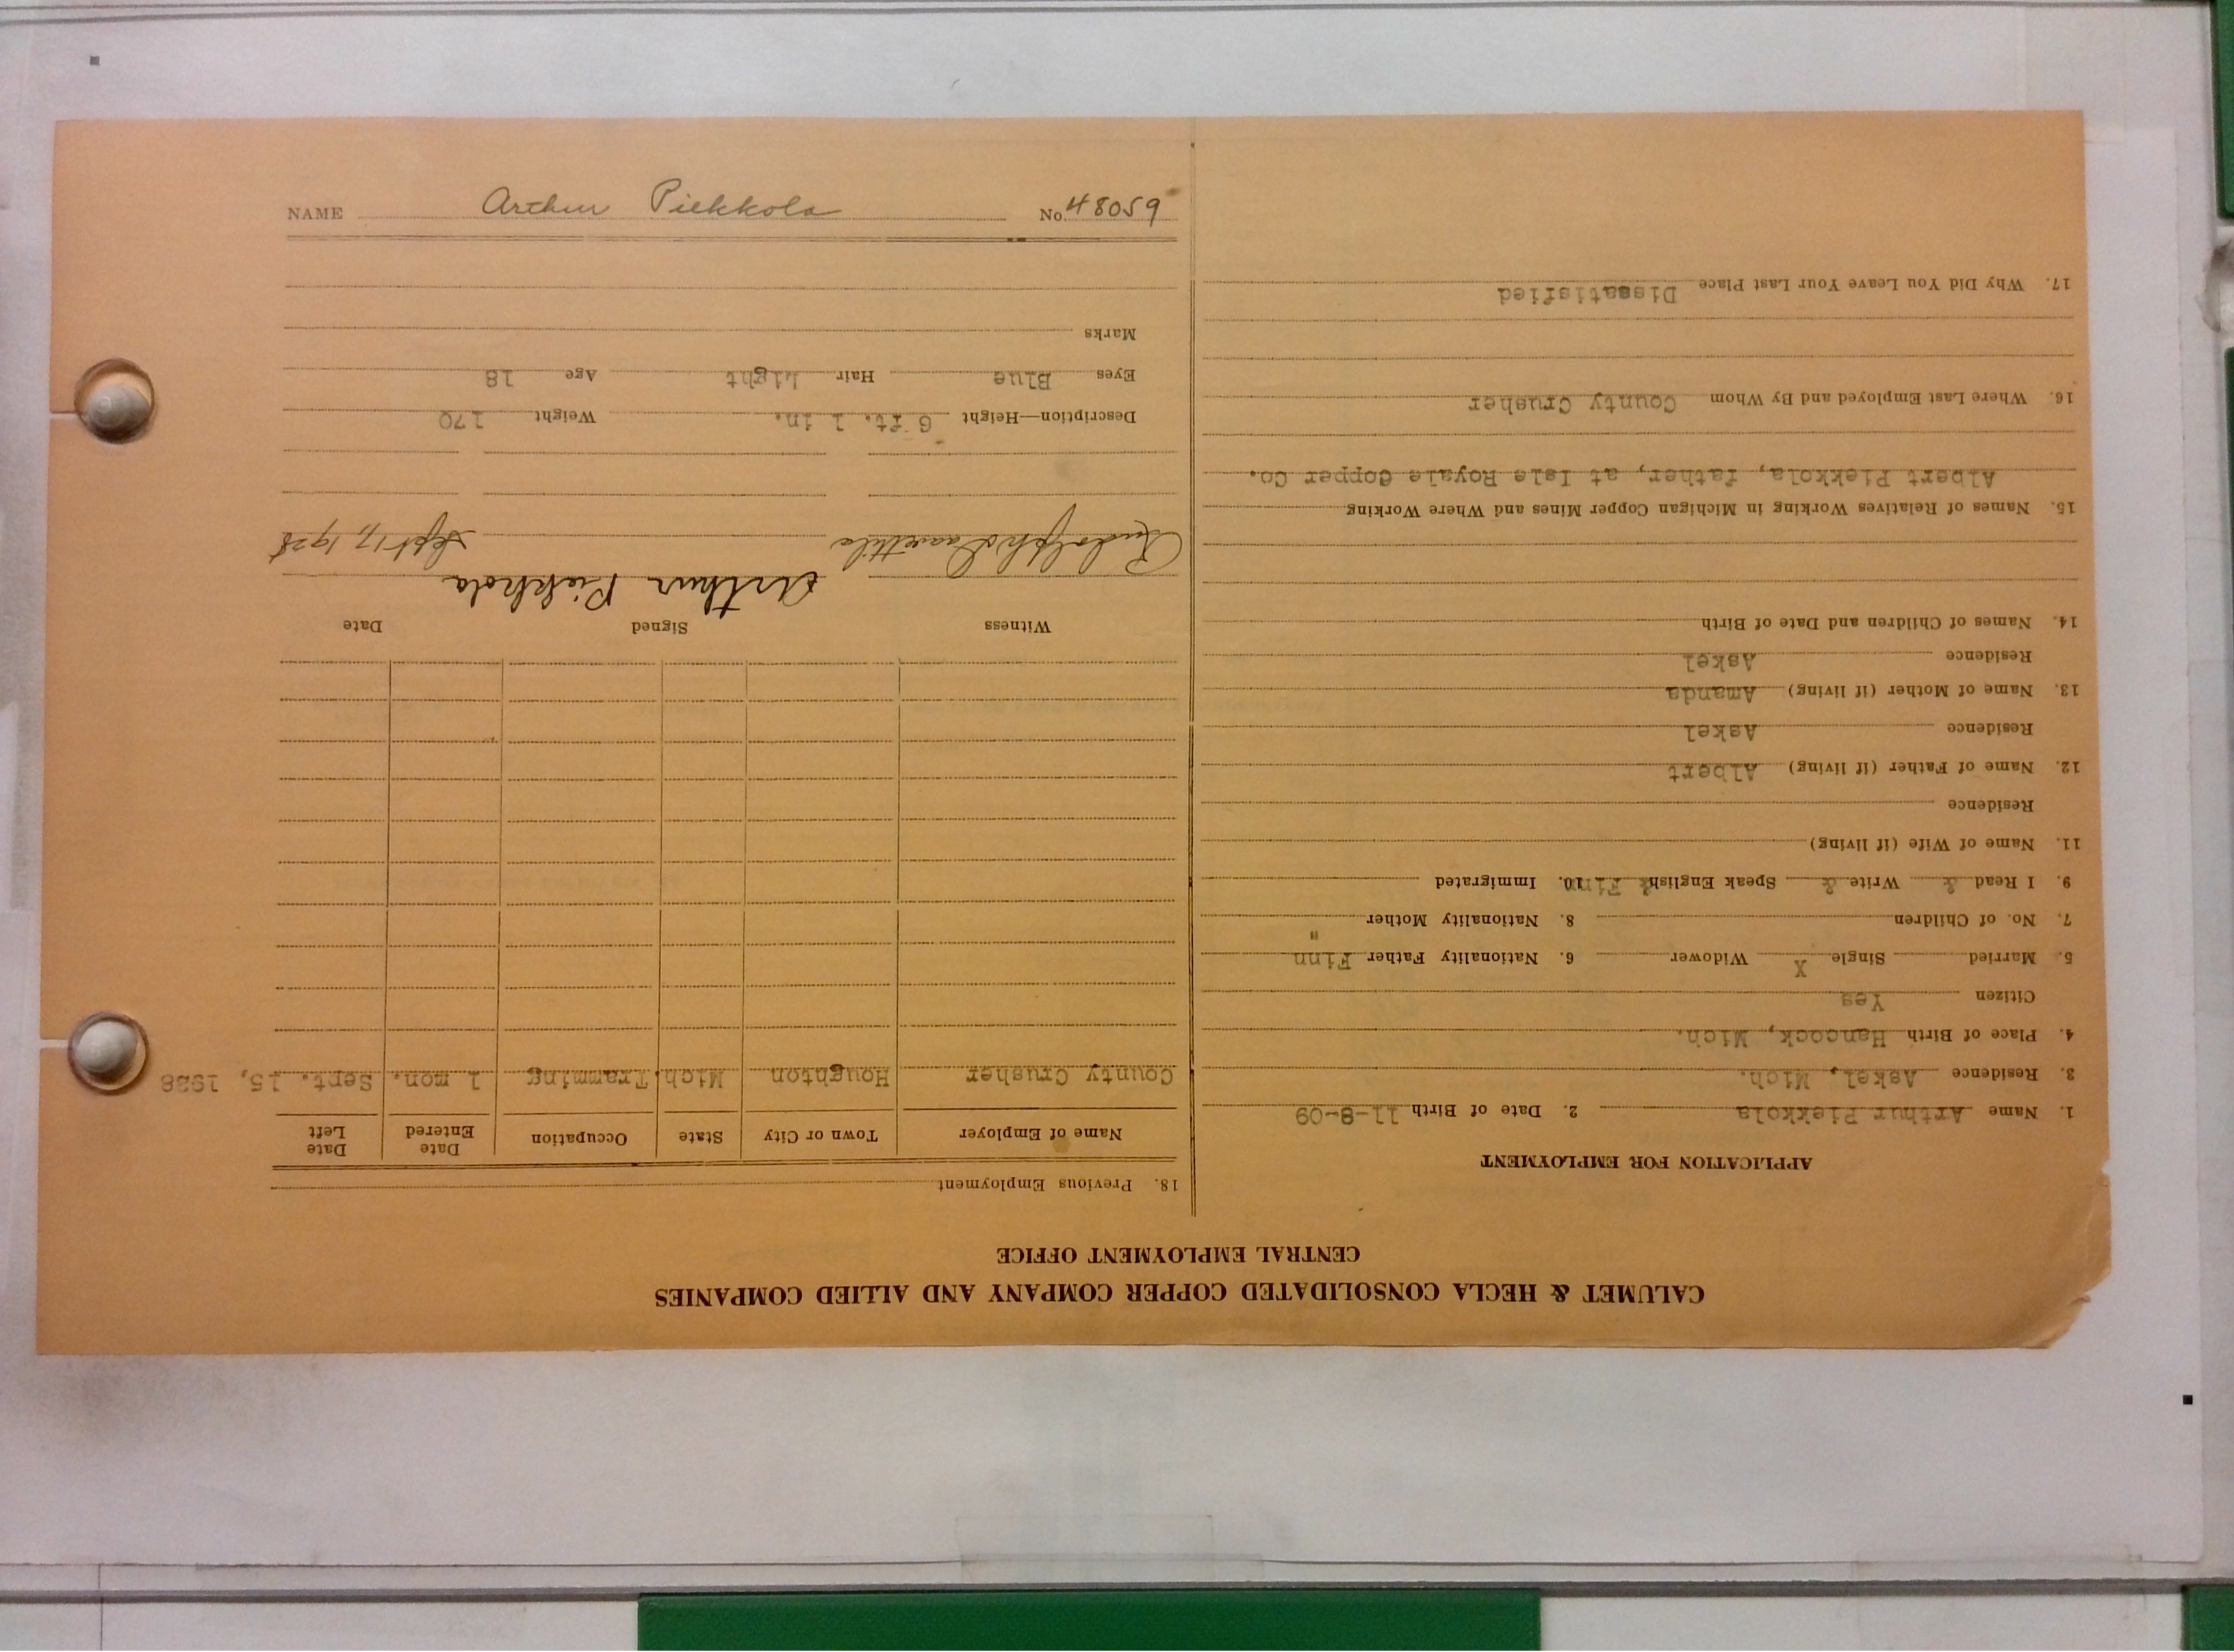 NAME Arthur Piekkola No. 48059
CALUMET & HECLA CONSOLIDATED COPPER COMPANY AND ALLIED COMPANIES
CENTRAL EMPLOYMENT OFFICE
APPLICATION FOR EMPLOYMENT
1. Name Arthur Piekkola 2. Date of Birth 11-8-09
3. Residence Askel, Mich.
4. Place of Birth Hancock, Mich.
Citizen Yes
5. Married Single X Widower 6. Nationality Father Finn
7. No. of Children 8. Nationality Mother "
9. I Read & Write & Speak English & Finn 10. Immigrated
11. Name of Wife (if living)
Residence
12. Name of Father (if living) Albert
Residence Askel
13. Name of Mother (if living) Amanda
Residence Askel
14. Names of Children and Date of Birth
15. Names of Relatives Working in Michigan Copper Mines and Where Working
Albert Piekkola, father, at Isle Royale Copper Co.
16. Where Last Employed and By Whom County Crusher
17. Why Did You Leave Your Last Place Dissatisfied
18. Previous Employment
Name of Employer Town or City State Occupation Date Entered Date Left
County Crusher Houghton Mich. Tramming 1 mon. Sept. 15, 1928
Witness Signed Date
Rudolph Arthur Piekkola Sept 17, 1928
Description—Height 6 ft. 1 in. Weight 170
Eyes Blue Hair Light Age 18
Marks